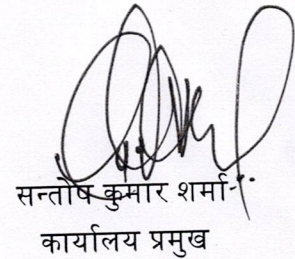 सन्तोष कुमार शर्मा
कार्यालय प्रमुख